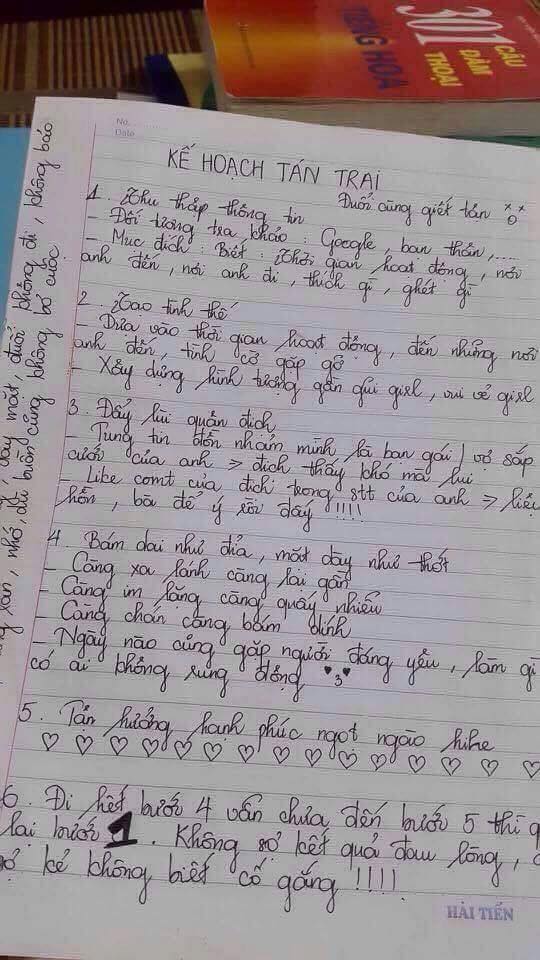 301
CÂU
ĐÀM
THOẠI
TIẾNG HOA
No.
Date
KẾ HOẠCH TÁN TRAI
1. Thu thập thông tin Đuổi cùng giết tận
- Đối tượng tra khảo : Google, bạn thân,....
- Mục đích : Biết : Thời gian hoạt động, nơi
anh đến, nơi anh đi, thích gì, ghét gì
2. Tạo tình thế
- Dựa vào thời gian hoạt động, đến những nơi
anh đến, tình cờ gặp gỡ
- Xây dựng hình tượng gần gũi girl, vui vẻ girl
3. Đẩy lùi quân địch
- Tung tin đồn nhảm mình là bạn gái / vợ sắp
cưới của anh => địch thấy khó mà lui
- Like comt của địch trong stt của anh => liệu
hồn, bà để ý rồi đấy !!!!
4. Bám dai như đỉa, mặt dày như thớt
- Càng xa lánh càng lại gần
- Càng im lặng càng quấy nhiễu
- Càng chán càng bám dính
- Ngày nào cũng gặp người đáng yêu, làm gì
có ai không rung động
5. Tận hưởng hạnh phúc ngọt ngào hihe
♡ ♡ ♡ ♡ ♡ ♡ ♡ ♡ ♡ ♡ ♡ ♡ ♡ ♡ ♡
6. Đi hết bước 4 vẫn chưa đến bước 5 thì q
lại bước 1. Không sợ kết quả đau lòng,
sợ kẻ không biết cố gắng !!!!
HẢI TIẾN
nhớ, dù buồn cũng không bỏ cuộc
mặt, đuổi không đi, không báo